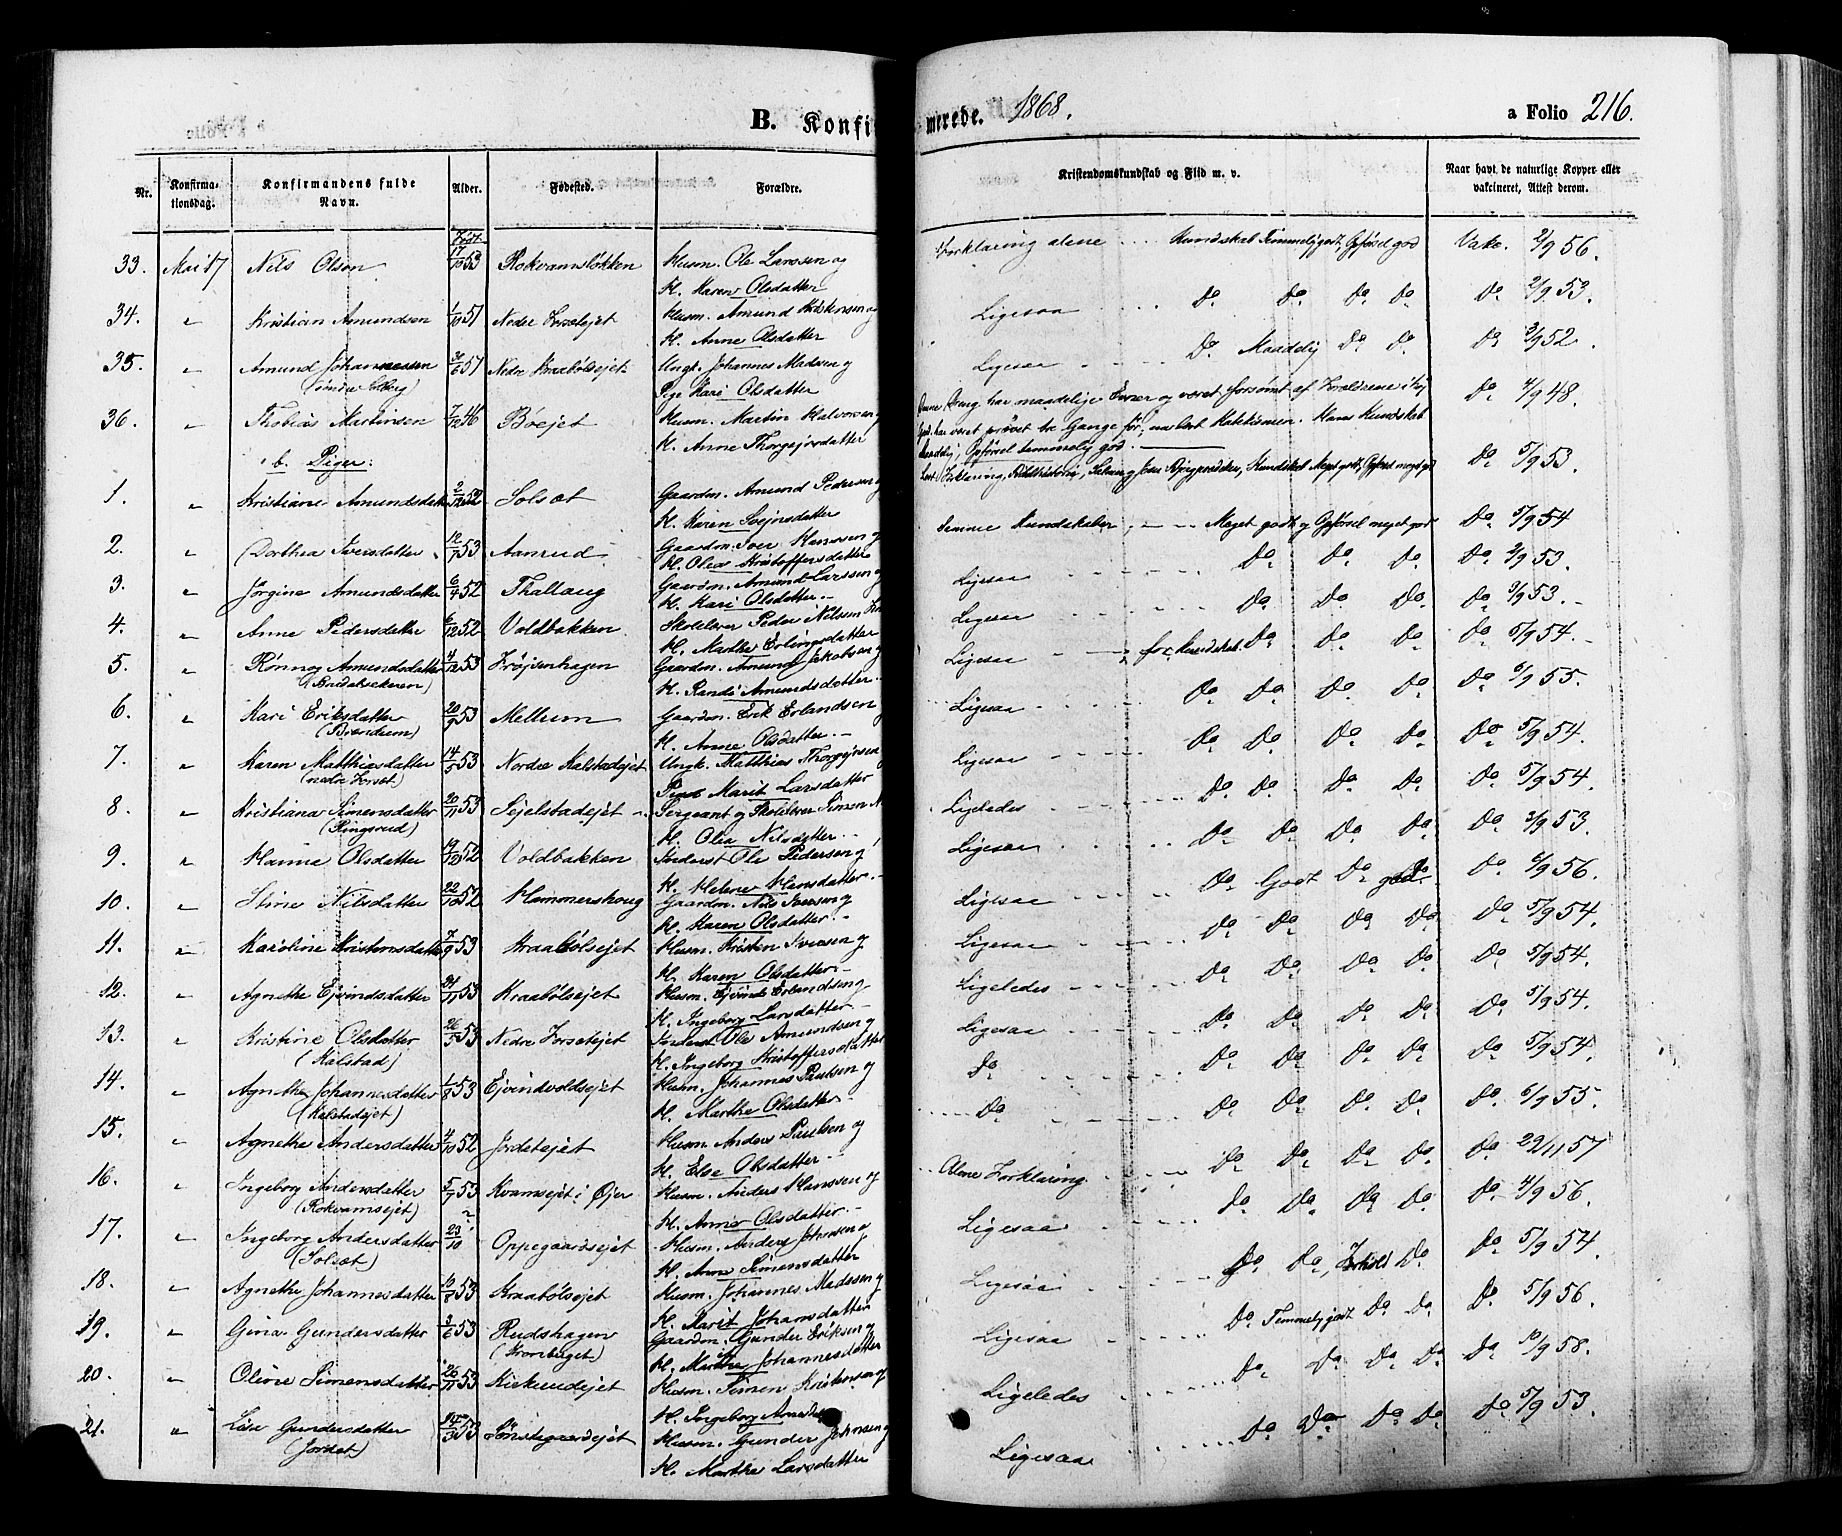 B. Konfirmerede. 1868. a Folio 216.
Nr. Konfirmationsdag. Konfirmandens fulde Navn. Alder. Fødested. Forældre. Kristendomskundskab og Flid m. v. Naar havt de naturlige Kopper eller vakcineret, Attest derom.
Født
33. Mai 17 Nils Olsen 17/10 53 Rokvamsløkken Husm. Ole Larssen og Forklaring alene Kundskab Temmelig godt, Opførsel god Vakc. 2/9 56.
K. Karen Olsdatter
34. " Kristian Amundsen 1/10 51 Nedre Forsetejet Husm. Amund Kristensen og Ligesaa Do Do Do Do Do 2/9 53.
K. Anne Olsdatter
35. " Amund Johannessen 30/6 51 Nedre Kraabølsejet Ungk. Johannes Madsen og Ligesaa Do Maadelig Do Do Do 3/9 52.
(søndre Solberg) Pige Kari Olsdatter
36. " Thobias Martinsen 7/12 46 Bøejet Husm. Martin Halvorsen og Denne Dreng har maadelige Evner og været forsømt af Forældrene Do 4/9 48.
K. Anne Thorgejrsdatter har været prøvet tre Gange før, kun lært Katekismen. Hans Kundskab Maadelig, Opførsel temmelig god.
b. Piger:
1. " Kristiane Amundsdatter 2/12 52 Solsæt Gaardm. Amund Pedersen og Læst Forklaring, Bibelhistorie, Kundskab Meget godt, Opførsel meget god Do 5/9 53.
K. Karen Svejnsdatter
2. " Dorthea Iversdatter 12/1 53 Aanrud Gaardm. Iver Hanssen og Samme Kundskaber, Meget godt og Opførsel meget god Do 5/9 54
K. Olea Kristoffersdatter
3. " Jørgine Amundsdatter 6/4 52 Thallaug Gaardm. Amund Larssen og Ligesaa Do Do Do Do 2/9 53.
K. Kari Olsdatter
4. " Anne Pedersdatter 6/12 52 Voldbakken Skolelærer Peder Nilssen Ligesaa Do Do Do Do 3/9 53.
K. Marthe Erlingsdatter
5. " Rønnog Amundsdatter 4/12 53 Frøjsenhagen Gaardm. Amund Jakobsen og Ligesaa for Kundskab Do Do Do Do 5/9 54.
K. Randi Amundsdatter
6. " Kari Eriksdatter 20/9 53 Mellum Gaardm. Erik Erlandsen og Ligesaa Do Do Do Do Do 6/9 55.
K. Anne Olsdatter
7. " Karen Matthiasdatter 14/5 53 Nordre Kalstadejet Ungk. Matthias Thorgejrsen Ligesaa Do Do Do Do Do 5/9 54.
(nedre Forset) Pige Marit Larsdatter
8. " Kristiana Simensdatter 20/11 53 Sejelstadejet Sergeant og Skolelærer Simen Ligeledes Do Do Do Do Do 5/9 54.
(Ringsrud) K. Olea Nilsdatter
9. " Hanne Olsdatter 19/12 52 Voldbakken Inderst Ole Pedersen og Ligesaa Do Do Do Do Do 2/9 53.
K. Helene Hansdatter
10. " Stine Nilsdatter 22/10 52 Hammershoug Gaardm. Nils Iversen og Ligesaa Do Godt Do Do 6/9 56.
K. Karen Olsdatter
11. " Karoline Kristensdatter 7/9 53 Kraabølsejet Husm. Kristen Iversen og Ligesaa Do Do Do Do Do 5/9 54.
K. Karen Olsdatter
12. " Agnethe Ejvindsdatter 24/11 53 Kraabølsejet Husm. Ejvind Erlandsen og Ligeledes Do Do Do Do Do 5/9 54.
K. Ingeborg Larsdatter
13. " Kristine Olsdatter 26/5 53 Nedre Forsetejet Inderst Ole Amundsen og Ligesaa Do Do Do Do Do 5/9 54.
(Kalstad) K. Ingeborg Kristoffersdatter
14. " Agnethe Johannesdatter 1/8 53 Ejvindvoldsejet Husm. Johannes Paulsen og Do Do Do Do Do Do 5/9 54.
(Kalstadejet) K. Marthe Olsdatter
15. " Agnethe Andersdatter 4/10 52 Jordetejet Husm. Anders Paulsen og Do Do Do Do Do Do 6/9 55.
K. Else Olsdatter
16. " Ingeborg Andersdatter 5/1 53 Kvamsejet i Øjer Husm. Anders Hanssen og Alene Forklaring Do Do Do Do Do 29/11 57
(Rokvamsejet) K. Anne Olsdatter
17. " Ingeborg Andersdatter 23/10 Oppegaardsejet Husm. Anders Johnsen og Ligesaa Do Do Do Do Do 4/9 56.
(Solsæt) K. Anne Simensdatter
18. " Agnethe Johannesdatter 10/8 53 Kraabølsejet Husm. Johannes Madssen og Ligesaa Do Do, Forhold Do Do 5/9 54.
K. Marit Johansdatter
19. " Gina Gundersdatter 3/6 53 Rudshagen Gaardm. Gunder Eriksen og Ligesaa Do Temmelig godt Do Do Do 5/9 56.
K. Marthe Johannesdatter
20. " Oline Simensdatter 26/11 53 Kirkerudejet Husm. Simen Kristensen og Ligeledes Do Do Do Do Do 10/9 58.
K. Ingeborg
21. " Lise Gundersdatter 53 Tønstegaardsejet Husm. Gunder Johnsen og Ligesaa Do Do Do Do Do 5/9 53.
(Jordet) K. Marthe Larsdatter